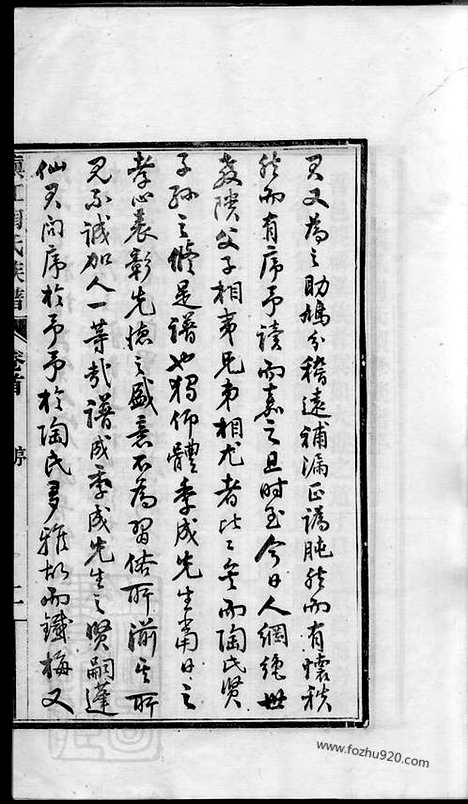 君又為之助鳩分稽遠補漏正譌肫然而有懷秩
然而有序予讀而嘉之且時至今日人綱絕世
教隤父子相夷兄弟相尤者比比矣而陶氏賢
子孫之修是譜也獨仰體季成先生當日之
孝心表彰先德之盛意不為習俗所湔其所
見不誠加人一等哉譜成季成先生之賢嗣蓬
仙君問序於予予於陶氏多雅故而鐵梅又
鎮江陶氏族譜
卷首
序
二
www.fozhu920.com